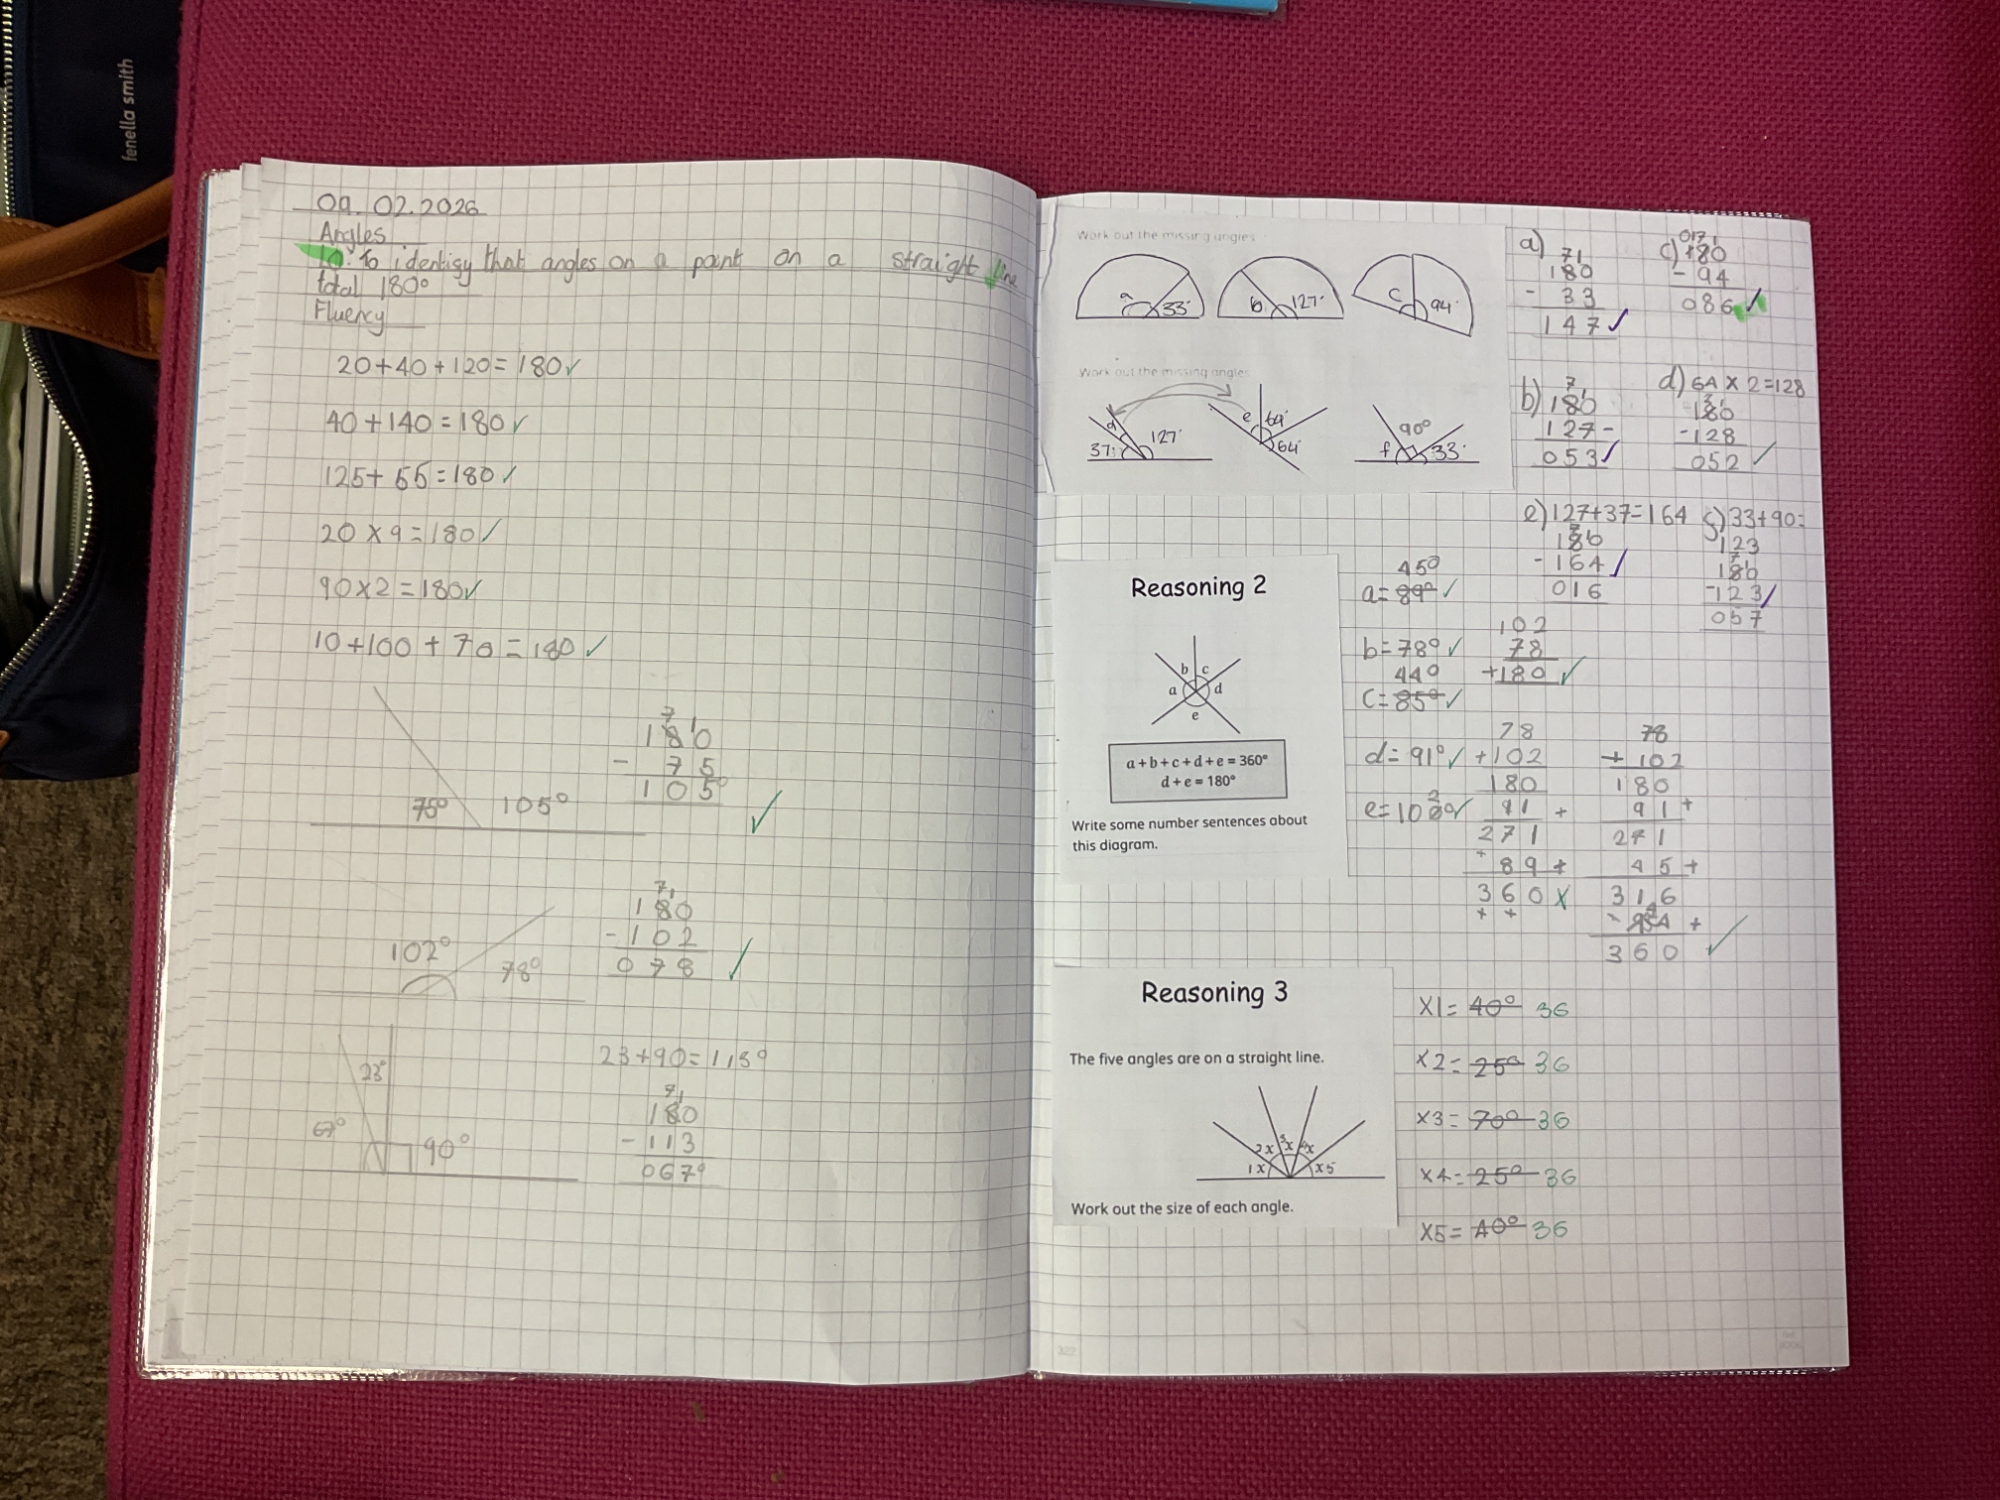 fenella smith
09.02.2026
Angles
LO: To identisy that angles on a point on a straight line
total 180°
Fluency
20+40+120=180✓
40+140=180✓
125+55=180✓
20×9=180✓
90×2=180✓
10+100+70=180✓
7 1
180
- 75
105°
✓
75° 105°
7 1
180
-102
078
✓
102° 78°
23+90=113°
7 1
180
-113
067°
23°
67° 90°
Work out the missing angles
a 33°
b 127°
c 94°
Work out the missing angles
37° d 127°
e 64° 64°
f 90° 33°
a) 7 1
180
- 33
147✓
c) 0 17 1
180
- 94
086✓
b) 7 1
180
127-
053✓
d) 64×2=128
7 1
180
-128
052✓
e) 127+37=164
7 1
180
-164✓
016
f) 33+90=
123
7 1
180
-123✓
057
Reasoning 2
b c
a d
e
a + b + c + d + e = 360°
d + e = 180°
Write some number sentences about
this diagram.
45°
a=89°✓
b=78°✓
44°
c=85°✓
d=91°✓
e=102°✓
102
78
+180✓
78
+102
180
91+
271
89+
360×
78
+102
180
91+
271
45+
316
44+
360✓
Reasoning 3
The five angles are on a straight line.
1x 2x 3x 4x x5
Work out the size of each angle.
x1=40° 36
x2=25° 36
x3=70° 36
x4=25° 36
x5=40° 36
322